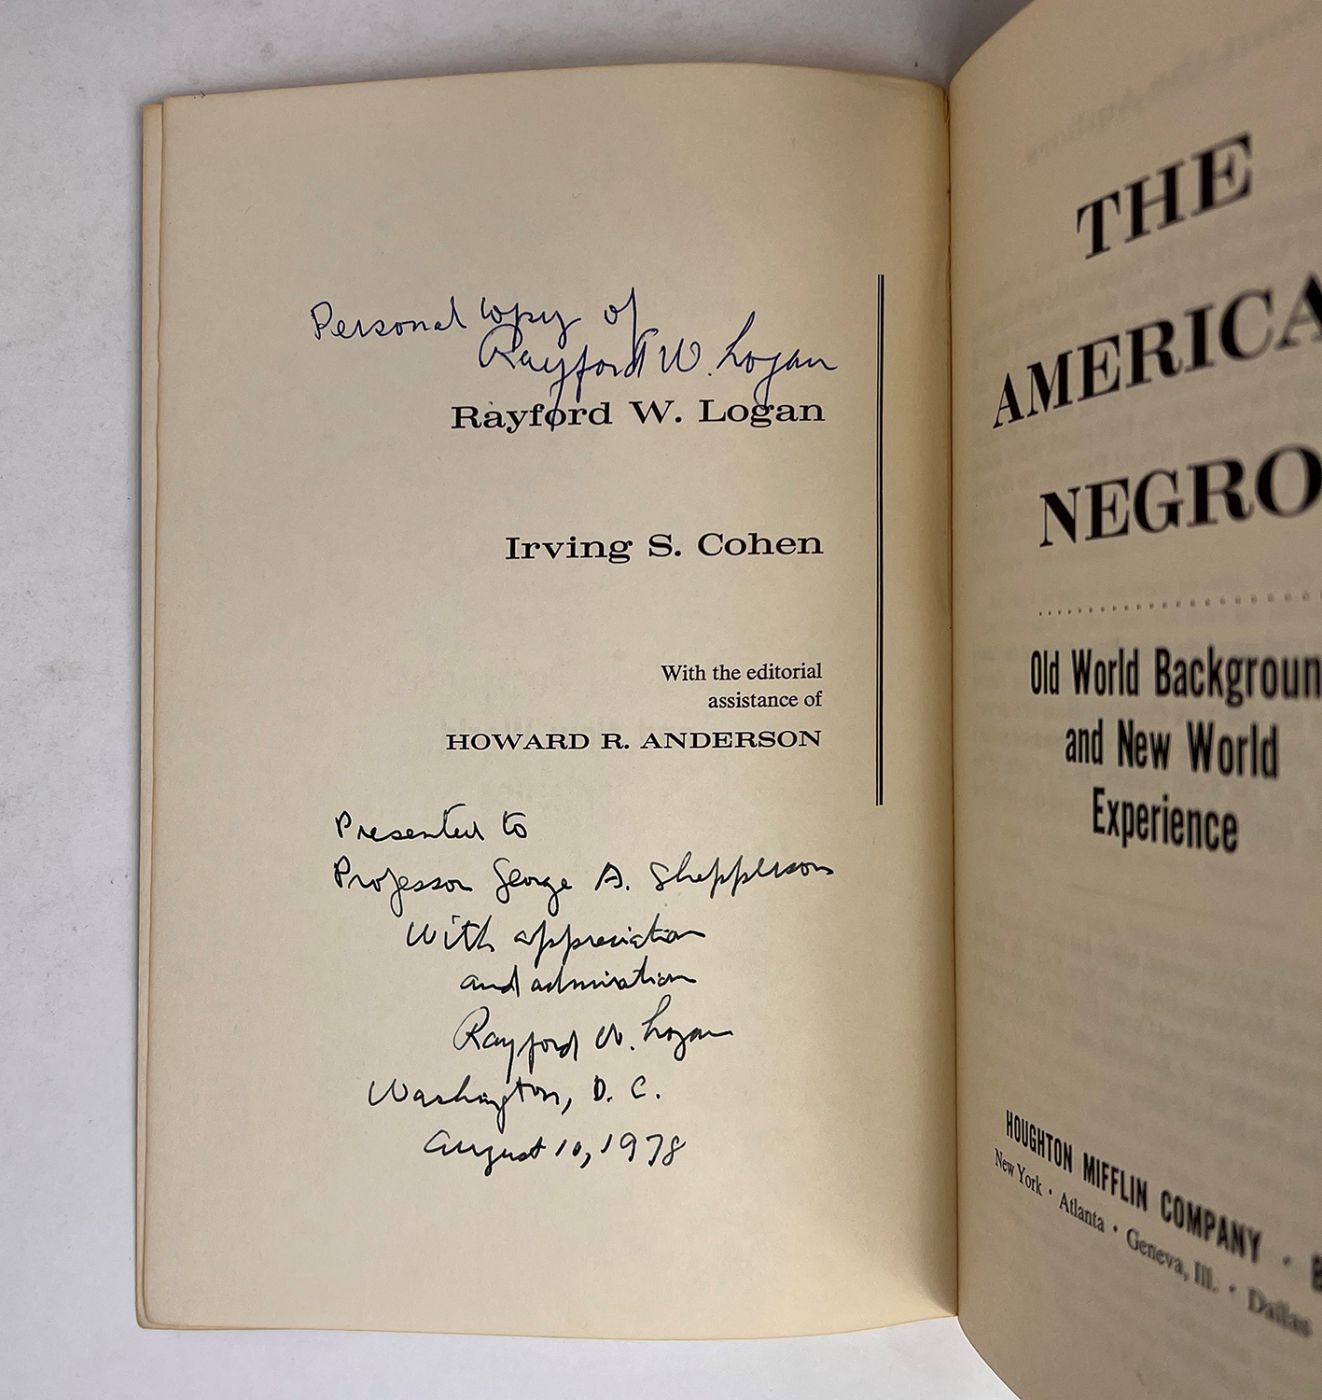 Personal copy of
Rayford W. Logan
Rayford W. Logan
Irving S. Cohen
With the editorial
assistance of
HOWARD R. ANDERSON
Presented to
Professor George A. Shepperson
With appreciation
and admiration
Rayford W. Logan
Washington, D. C.
August 10, 1978
THE
AMERICA
NEGRO
Old World Backgroun
and New World
Experience
HOUGHTON MIFFLIN COMPANY · B
New York · Atlanta · Geneva, Ill. · Dallas